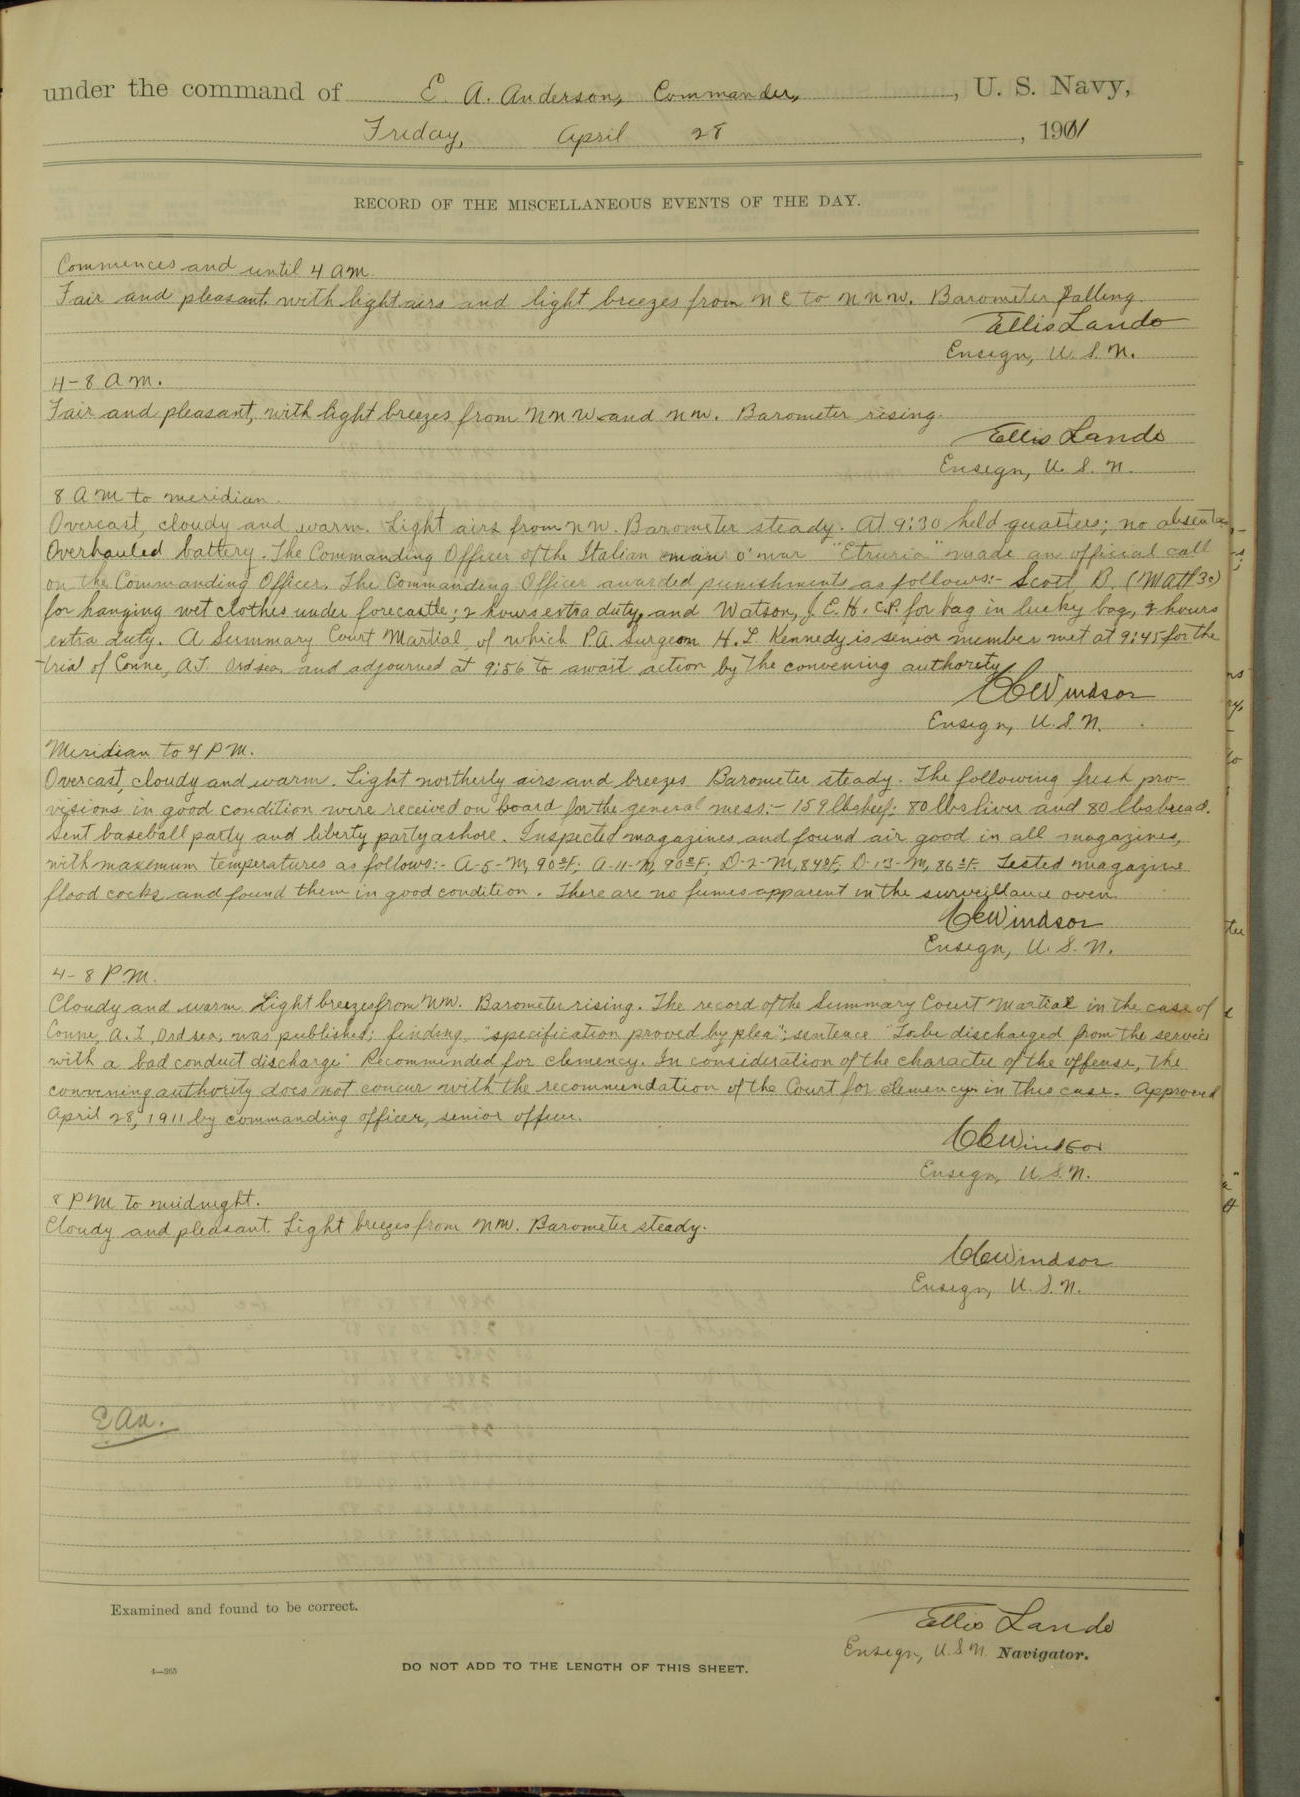 under the command of E. A. Anderson, Commander, , U. S. Navy,
Friday, April 28 , 1911
RECORD OF THE MISCELLANEOUS EVENTS OF THE DAY.
Commences and until 4 am.
Fair and pleasant with light airs and light breezes from NE to NNW. Barometer falling.
Ellis Lando
Ensign, U.S.N.
4-8 AM.
Fair and pleasant, with light breezes from NNW and NW. Barometer rising.
Ellis Lando
Ensign, U.S.N.
8 AM to meridian.
Overcast, cloudy and warm. Light airs from NW. Barometer steady. At 9:30 held quarters; no absentees
Overhauled battery. The Commanding Officer of the Italian man o' war "Etruria" made an official call
on the Commanding Officer. The Commanding Officer awarded punishments as follows:- Scott, B. (Matt 3c)
for hanging wet clothes under forecastle; 2 hours extra duty, and Watson, J.E.H., C.P. for bag in lucky bag, 2 hours
extra duty. A Summary Court Martial, of which P.A. Surgeon H. L. Kennedy is senior member met at 9:45 for the
trial of Conne, A.T. Ord sea, and adjourned at 9:56 to await action by the convening authority
CE Windsor
Ensign, U.S.N.
Meridian to 4 PM.
Overcast, cloudy and warm. Light northerly airs and breezes Barometer steady. The following fresh pro-
visions in good condition were received on board for the general mess:- 159 lbs beef; 80 lbs liver and 80 lbs bread.
Sent baseball party and liberty party ashore. Inspected magazines and found air good in all magazines,
with maximum temperatures as follows:- A-5-M, 90°F; A-11-M, 90°F; D-2-M, 84°F, D-13-M, 86°F. Tested magazine
flood cocks and found them in good condition. There are no fumes apparent in the surveillance oven.
CE Windsor
Ensign, U.S.N.
4-8 PM.
Cloudy and warm. Light breezes from NW. Barometer rising. The record of the Summary Court Martial in the case of
Conne, A.T., Ord sea, was published; finding, "specification proved by plea"; sentence "To be discharged from the service
with a bad conduct discharge" Recommended for clemency. In consideration of the character of the offense, the
convening authority does not concur with the recommendation of the Court for clemency in this case. Approved
April 28, 1911 by commanding officer, senior officer.
CE Windsor
Ensign, U.S.N.
8 PM to midnight.
Cloudy and pleasant. Light breezes from NW. Barometer steady.
CE Windsor
Ensign, U.S.N.
E.A.A.
Examined and found to be correct.
Ellis Lando
Ensign, U.S.N. Navigator.
4—265
DO NOT ADD TO THE LENGTH OF THIS SHEET.